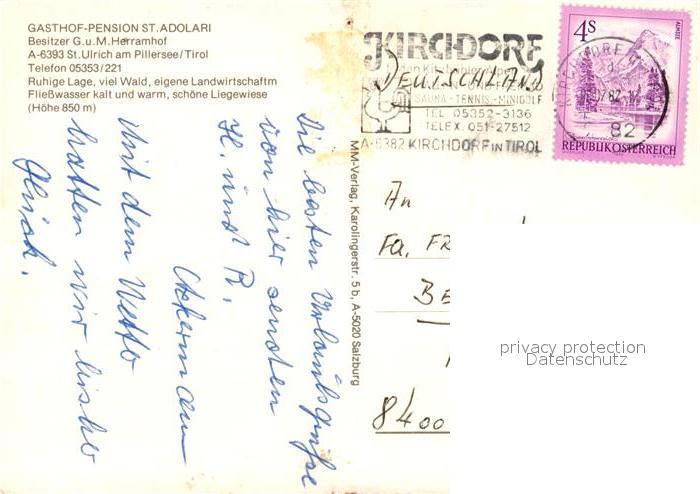 GASTHOF-PENSION ST. ADOLARI
Besitzer G. u. M. Herramhof
A-6393 St. Ulrich am Pillersee/Tirol
Telefon 05353/221
Ruhige Lage, viel Wald, eigene Landwirtschaftm
Fließwasser kalt und warm, schöne Liegewiese
(Höhe 850 m)
Die besten Urlaubsgrüße
von hier senden
H. und R.
Ackermann
Mit dem Wetter
hatten wir bisher
Glück.
MM-Verlag, Karolingerstr. 5 b, A-5020 Salzburg
KIRCHDORF
DEUTSCHLAND
SAUNA-TENNIS-MINIGOLF
TEL 05352-3136
TELEX. 051-27512
A-6382 KIRCHDORF IN TIROL
4S
ALMSEE
82
REPUBLIK ÖSTERREICH
An
Fa. FR
BE
8400
privacy protection
Datenschutz